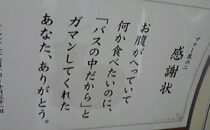 マナー標語の二
感謝状
お腹がへっていて
何か食べたいのに、
「バスの中だから」と
ガマンしてくれた
あなた、ありがとう。